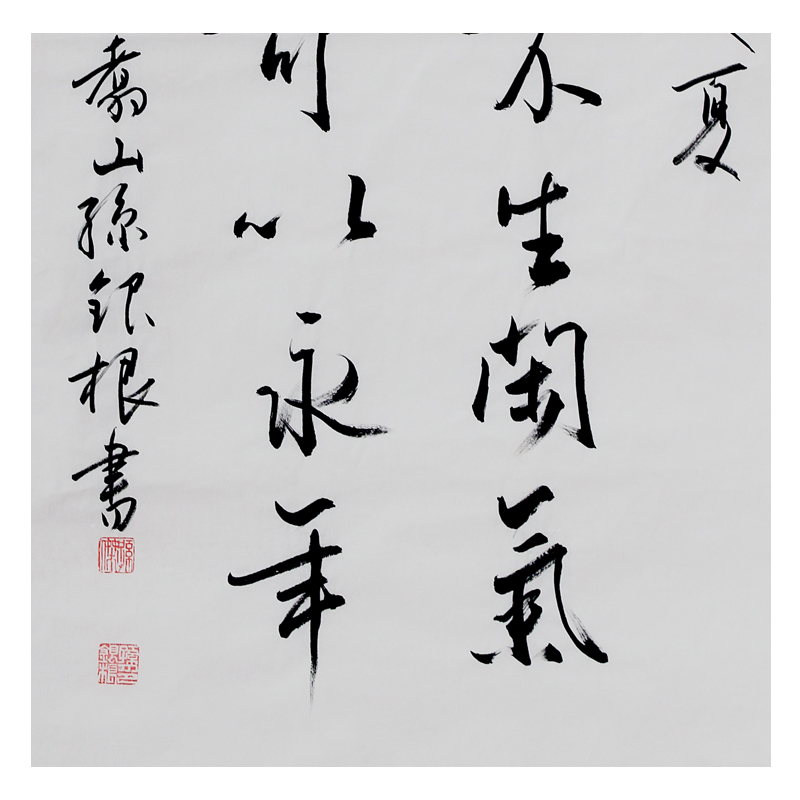 夏
不生閑氣
可以永年
翥山孫銀根書